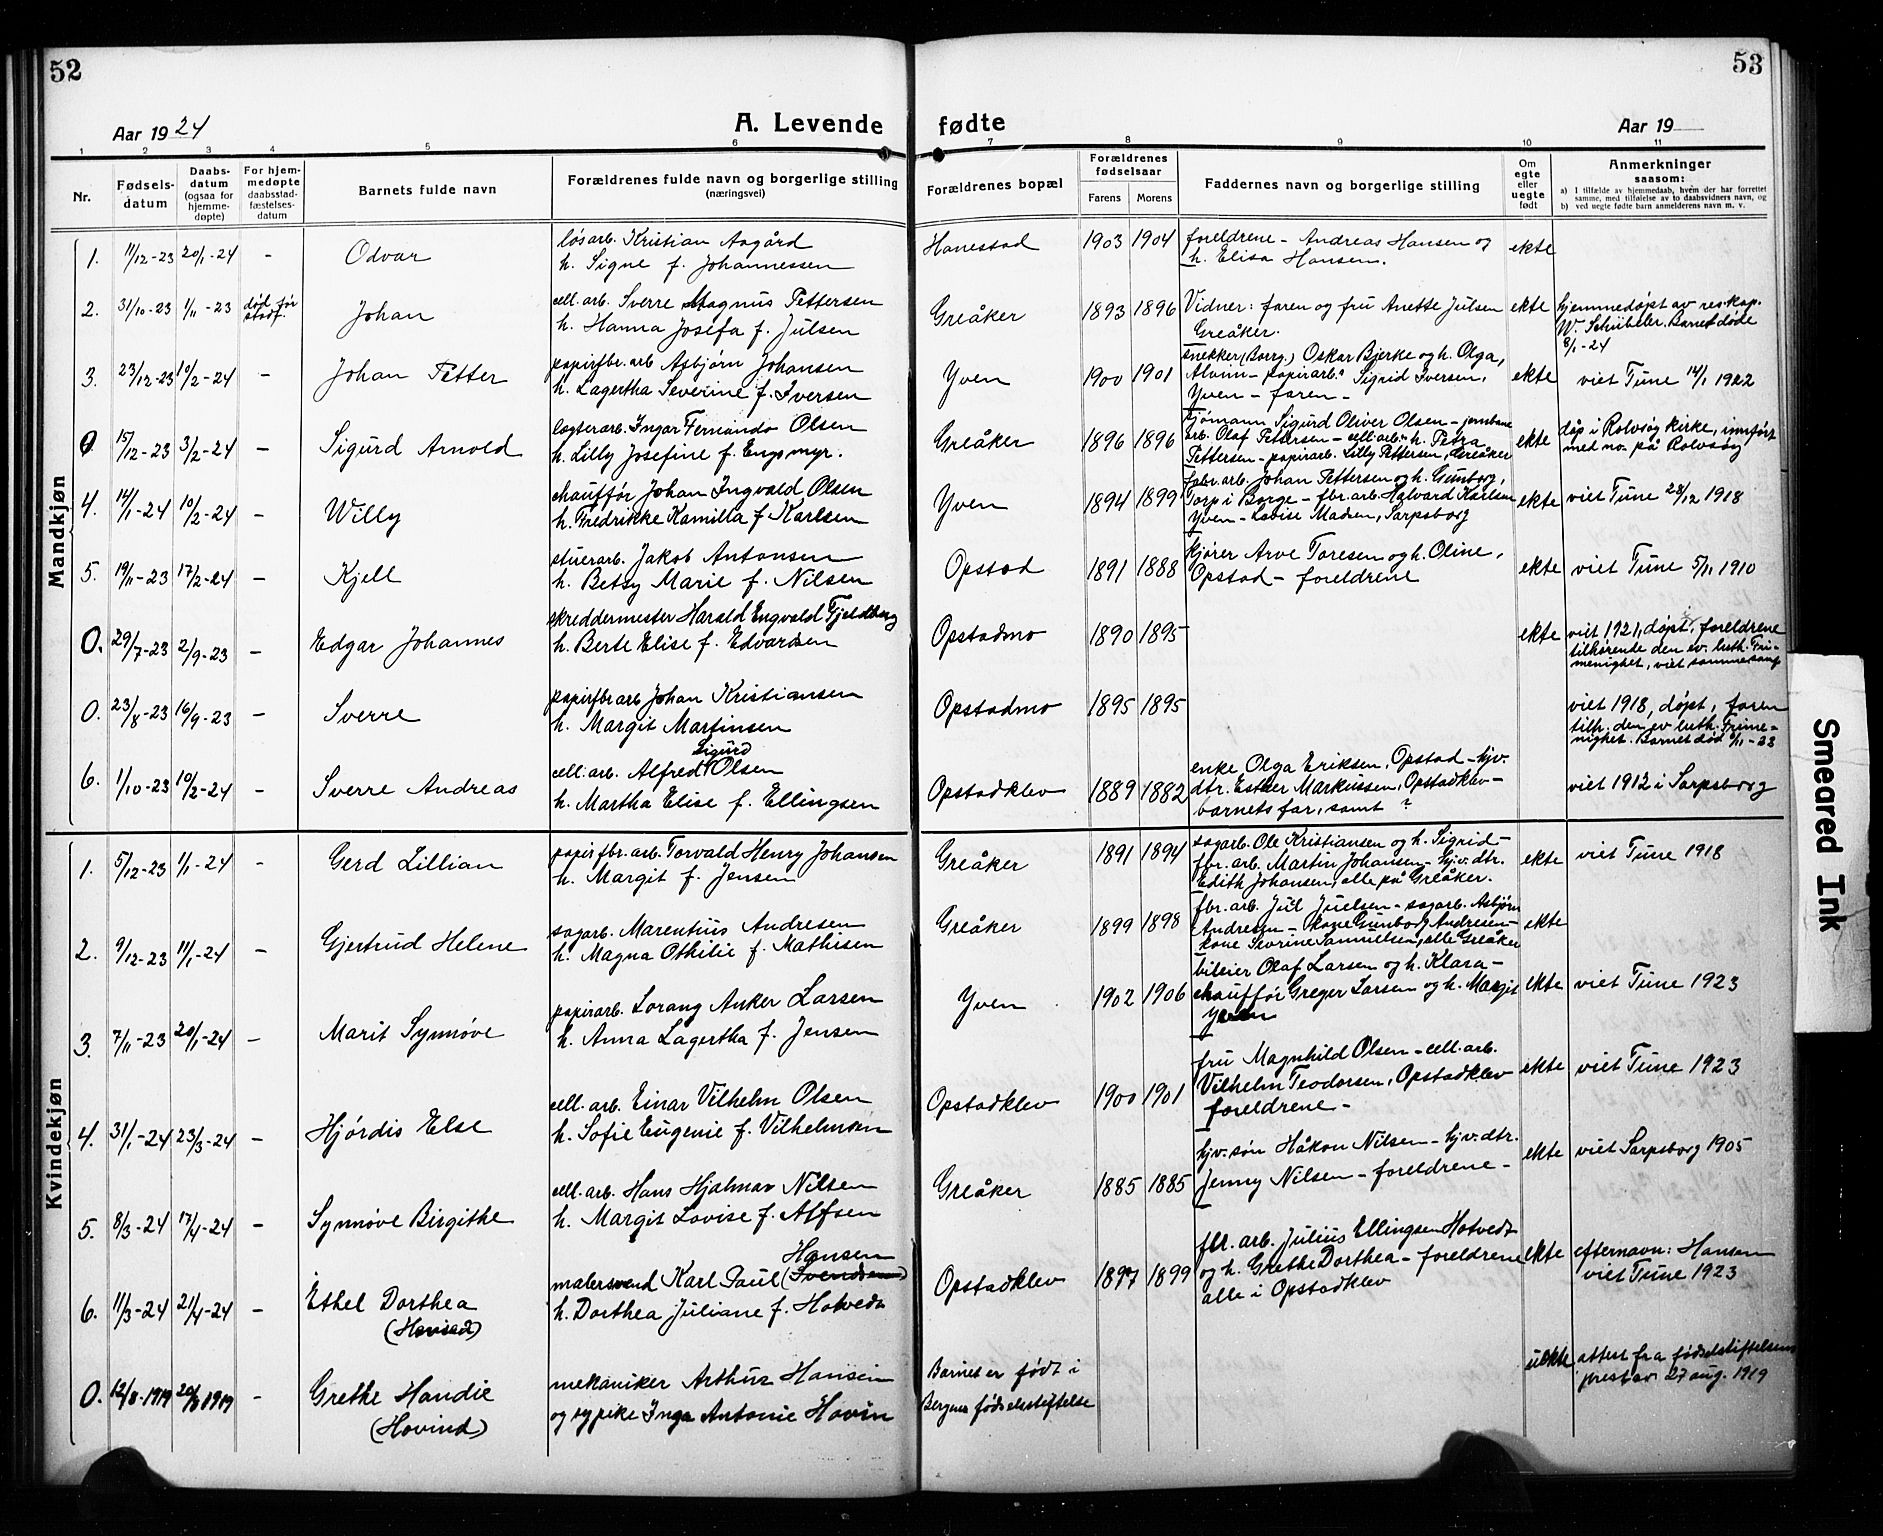 52
53
Aar 1924
A. Levende
fødte
Aar 19
1 2 3 4 5 6 7 8 9 10 11
Nr.
Fødsels-
datum
Daabs-
datum
(ogsaa for
hjemme-
døpte)
For hjem-
medøpte
daabsstad-
fæstelses-
datum
Barnets fulde navn
Forældrenes fulde navn og borgerlige stilling
(næringsvei)
Forældrenes bopæl
Forældrenes
fødselsaar
Farens
Morens
Faddernes navn og borgerlige stilling
Om
egte
eller
uegte
født
Anmerkninger
saasom:
a) I tilfælde av hjemmedaab, hvem der har forrettet
samme, med tilføielse av to daabsvidners navn, og
b) ved uegte fødte barn anmelderens navn m. v.
Mandkjøn
1. 11/12-23 20/1-24 - Odvar
løsarb. Kristian Aagård
h. Signe f. Johannessen
Hanestad 1903 1904
foreldrene - Andreas Hansen og
h. Elisa Hansen.
ekte
2. 31/10-23 1/11-23
død før
stadf.
Johan
cell. arb. Sverre Magnus Pettersen
h. Hanna Josefa f. Julsen
Greåker 1893 1896
Vidner: faren og fru Anette Julsen
Greåker.
ekte
hjemmedøpt av res. kap.
W. Schübeler. Barnet døde
8/1-24
3. 23/12-23 10/2-24 - Johan Petter
papirfbr. arb. Asbjørn Johansen
h. Lagertha Severine f. Iversen
Yven 1900 1901
snekker (Borg.) Oskar Bjerke og h. Olga,
Alvim - papirarb. Sigrid Iversen,
Yven - faren -
ekte
viet Tune 14/1 1922
0. 15/12-23 3/2-24 - Sigurd Arnold
lagterarb. Ingar Fernando Olsen
h. Lilly Josefine f. Engsmyr.
Greåker 1896 1896
sjømann Sigurd Oliver Olsen - jernbane
arb. Olaf Pettersen - cell. arb. h. Petra
Pettersen - papirarb. Lilly Pettersen, Greåker
ekte
døp i Rolvsøy kirke, innført
med no. på Rolvsøy
4. 14/1-24 10/2-24 - Willy
chauffør Johan Ingvald Olsen
h. Fredrikke Kamilla f. Karlsen
Yven 1894 1899
fabr. arb. Johan Pettersen og h. Gunborg,
Torp i Borge - fbr. arb. Halvard Karlsen
Yven - Lovise Madsen, Sarpsborg
ekte
viet Tune 28/12 1918
5. 19/11-23 17/2-24 - Kjell
stuerarb. Jakob Antonsen
h. Betsy Marie f. Nilsen
Opstad 1891 1888
kjører Arve Toresen og h. Oline,
Opstad - foreldrene
ekte
viet Tune 5/11 1910
0. 29/7-23 2/9-23 - Edgar Johannes
skreddermester Harald Engvald Fjeldberg
h. Berte Elise f. Edvardsen
Opstadmo 1890 1895
ekte
viet 1921, døpt, foreldrene
tilhørende den ev. luth. Fri-
menighet, viet sammesang
0. 23/8-23 16/9-23 - Sverre
papirfbr arb Johan Kristiansen
h. Margit Martinsen
Opstadmo 1895 1895
viet 1918, døpt, faren
tilh. den ev luth. Frime-
nighet. Barnet død 6/11-23
6. 1/10-23 10/2-24 - Sverre Andreas
Sigurd
cell. arb. Alfred Olsen
h. Martha Elise f. Ellingsen
Opstadklev 1889 1882
enke Olga Eriksen, Opstad - hjv.
dtr. Esther Markussen, Opstadklev -
barnets far, samt ?
viet 1912 i Sarpsborg
Kvindekjøn
1. 5/12-23 1/1-24 - Gerd Lillian
papirfbr. arb. Torvald Henry Johansen
h. Margit f. Jensen
Greåker 1891 1894
sagarb. Ole Kristiansen og h. Sigrid -
fbr. arb. Martin Johansen - hjv. dtr.
Edith Johansen, alle på Greåker.
ekte
viet Tune 1918
2. 9/12-23 11/1-24 - Gjertrud Helene
sagarb. Marentius Andresen
h. Magna Othilie f. Mathisen
Greåker 1899 1898
fbr. arb. Jul Juelsen - sagarb. Asbjørn
Andresen - kone Gunborg Andresen -
kone Severine Samuelsen, alle Greåker
ekte
3. 7/11-23 20/1-24 - Marit Synnøve
papirarb. Lorang Anker Larsen
h. Anna Lagertha f. Jensen
Yven 1902 1906
bileier Olaf Larsen og h. Klara -
chauffør Greger Larsen og h. Margit
Yven
ekte
viet Tune 1923
4. 31/1-24 23/3-24 - Hjördis Else
cell. arb. Einar Vilhelm Olsen
h. Sofie Eugenie f. Vilhelmsen
Opstadklev 1900 1901
fru Magnhild Olsen - cell. arb.
Vilhelm Teodorsen, Opstadklev
foreldrene -
ekte
viet Tune 1923
5. 8/3-24 17/4-24 - Synnøve Birgithe
cell. arb. Hans Hjalmar Nilsen
h. Margit Lovise f. Alfsen
Greåker 1885 1885
hjv. søn Håkon Nilsen - hjv. dtr.
Jenny Nilsen - foreldrene -
ekte
viet Sarpsborg 1905
6. 11/3-24 21/4-24 - Ethel Dorthea
Hansen
malersvend Karl Paul (Svendsen)
h. Dorthea Juliane f. Hotvedt
Opstadklev 1897 1899
fbr. arb. Julius Ellingsen Hotvedt
og h. Grethe Dorthea - foreldrene
alle i Opstadklev
ekte
efternavn: Hansen
viet Tune 1923
0. 12/8-1919 20/8 1919 - Grethe Handie
(Hovind)
mekaniker Arthur Hansen
og sypike Inga Antonie Hovin
Barnet er født i
Bergens fødselsstiftelse
uekte
attest fra fødselsstiftelsens
prest av 27 aug. 1919
Smeared Ink